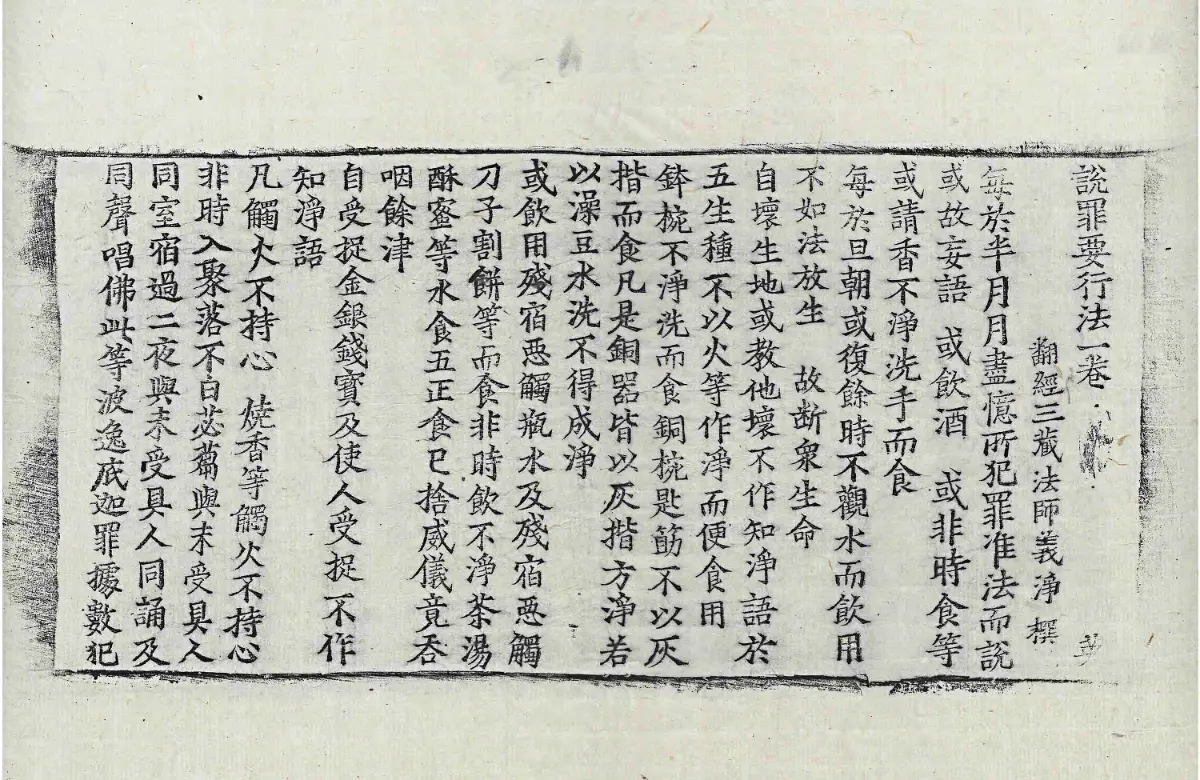 說罪要行法一卷
翻經三藏法師義淨 撰
每於半月月盡憶所犯罪准法而說
或故妄語 或飲酒 或非時食等
或請香不淨洗手而食
每於旦朝或復餘時不觀水而飲用
不如法放生 故断衆生命
自壞生地或教他壞不作知淨語於
五生種不以火等作淨而便食用
鉢椀不淨洗而食銅椀匙筯不以灰
揩而食凡是銅器皆以灰揩方淨若
以澡豆水洗不得成淨
或飲用殘宿惡觸瓶水及殘宿惡觸
刀子割餅等而食非時飲不淨茶湯
酥蜜等水食五正食已捨威儀竟吞
咽餘津
自受捉金銀錢寶及使人受捉不作
知淨語
凡觸火不持心 燒香等觸火不持心
非時入聚落不白苾蒭與未受具人
同室宿過二夜與未受具人同誦及
同聲唱佛此等波逸底迦罪據數犯